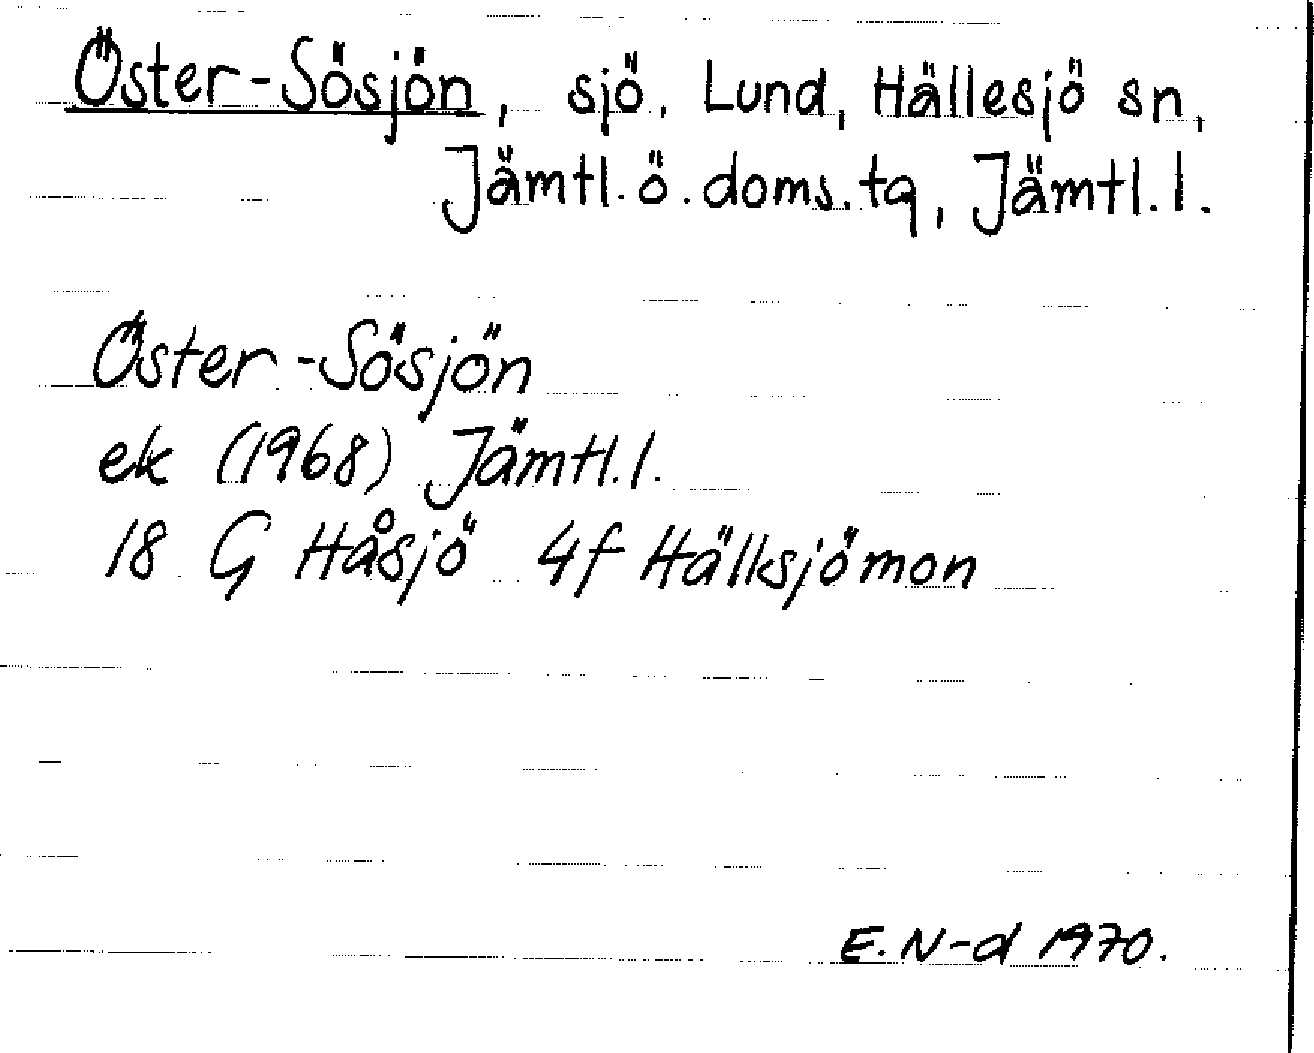 Öster-Sösjön, sjö, Lund, Hällesjö sn,
Jämtl. ö. doms. tg, Jämtl. l.
Öster-Sösjön
ek (1968) Jämtl. l.
18 G Håsjö 4f Hälksjömon
E. N-d 1970.